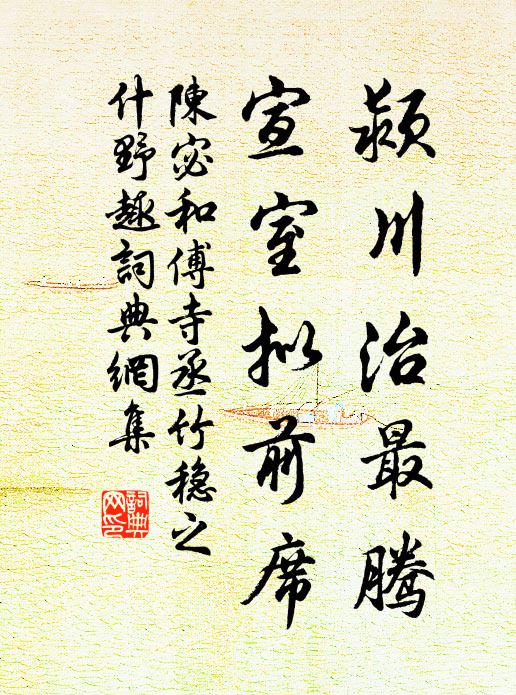 潁川治最腾
宣室拟前席
陳宓和傅寺丞竹稳之
什野趣詞典網集
詞典网印